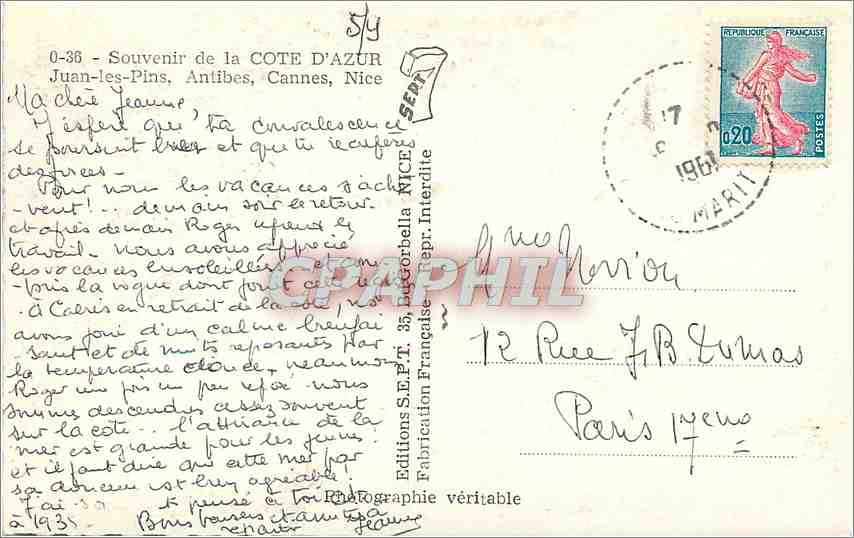 5/9
0-36 - Souvenir de la COTE D'AZUR
Juan-les-Pins, Antibes, Cannes, Nice
Ma chère Jeanne,
J'espère que ta convalescence
se poursuit bien et que tu récupères
des forces -
Pour nous les vacances s'achè
-vent!.. demain soir le retour
et après demain Roger reprend le
travail - Nous avons apprécié
les vacances ensoleillées
A Cabris en retrait de la côte, nous
avons joui d'un calme bienfai
sant et de nuits reposantes par
la température douce - néanmoins
Roger
nous
sommes descendus assez souvent
sur la côte .. l'attirance de la
mer est grande pour les jeunes
et il faut dire que cette mer par
sa douceur est bien agréable!
J'ai
et pensé à toi
à 1935
Bons baisers et amitiés à
Jeanne
SEPT
Editions S.E.P.T. 35, Bd Gorbella NICE
Fabrication Française - Repr. Interdite
Photographie véritable
REPUBLIQUE FRANÇAISE
0,20
POSTES
17
1961
MARIT
12 Rue J.B. Dumas
Paris 17eme
CPAPHIL